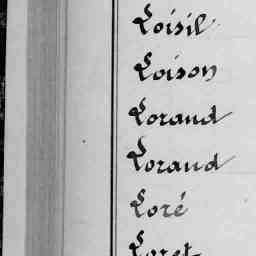 Loisil
Loison
Lorand
Lorand
Loré
Loret